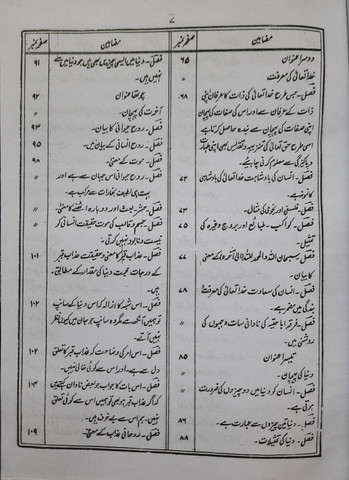 7
مضامین صفحہ نمبر
دوسرا عنوان ۶۵
خدا تعالیٰ کی معرفت "
فصل۔ جس طرح خدا تعالیٰ کی ذات کا عرفان اپنی ۶۸
ذات کے عرفان سے اور اس کی صفات کی پہچان
اپنی صفات کی پہچان سے بندہ حاصل کرتا ہے
اسی طرح حق تعالیٰ کی تنزیہہ و تقدیس بھی اپنی
پاکیزگی سے معلوم کرنی چاہیے۔
فصل۔ انسان کی بادشاہت خدا تعالیٰ کی بادشاہی ۷۲
کا نمونہ ہے۔
فصل۔ فلسفی اور نجومی کی مثال۔ ۷۳
فصل۔ کواکب۔ طبائع اور بروج وغیرہ کی ۷۵
تمثیل۔
فصل۔ سبحان اللہ والحمد للہ کے معنی ۷۷
کا بیان۔
فصل۔ انسان کی سعادت خدا تعالیٰ کی معرفت و ۷۸
بندگی میں مضمر ہے۔
فصل۔ فرقہ اباحتیہ کی نادانی سات وجہوں کی "
روشنی میں۔
تیسرا عنوان ۸۵
دنیا کی پہچان۔ "
فصل۔ انسان کو دنیا میں دو چیزوں کی ضرورت "
ہوتی ہے۔
فصل۔ دنیا تین چیزوں سے عبارت ہے۔ ۸۶
فصل۔ دنیا کی تمثیلات۔ ۸۸
مضامین صفحہ نمبر
فصل۔ دنیا میں ایسی چیزیں بھی ہیں جو دنیا میں سے ۹۱
نہیں ہیں۔
چوتھا عنوان ۹۲
آخرت کی پہچان۔ "
فصل۔ روح حیوانی کا بیان۔ ۹۳
فصل۔ روح انسانی۔ ۹۵
فصل۔ موت کے معنی۔ ۹۸
فصل۔ روح حیوانی اس جہان سے ہے اور "
بہت ہی لطیف بخارات سے مرکب ہے۔
فصل۔ حشر، بعث اور دوبارہ اٹھنے کے معنی۔ "
فصل۔ موت حقیقت انسانی کو "
نیست و نابود نہیں کرتی۔
فصل۔ عذاب قبر کا معنی و حقیقت عذاب قبر ۱۰۱
کے درجات محبت دنیا کی مقدار کے مطابق
ہیں۔
فصل۔ اس شبہ کا ازالہ کہ اس دنیا کے سانپ ۱۰۲
تو ہمیں نظر آتے ہیں مگر وہ سانپ جو جان میں کیوں نظر
نہیں آتے۔
فصل۔ اس امر کی وضاحت کہ عذاب قبر کا تعلق ۱۰۲
دل سے ہے اور اس سے کوئی خالی نہیں۔
فصل۔ اس بات کا جواب جو بعض نادان کہتے ہیں ۱۰۴
کہ اگر عذاب قبر ہو بھی تو ہمیں اس سے کوئی تعلق
نہیں۔ ہم اس سے بے خوف ہیں۔
فصل۔ روحانی عذاب کے معنی۔ ۱۰۹